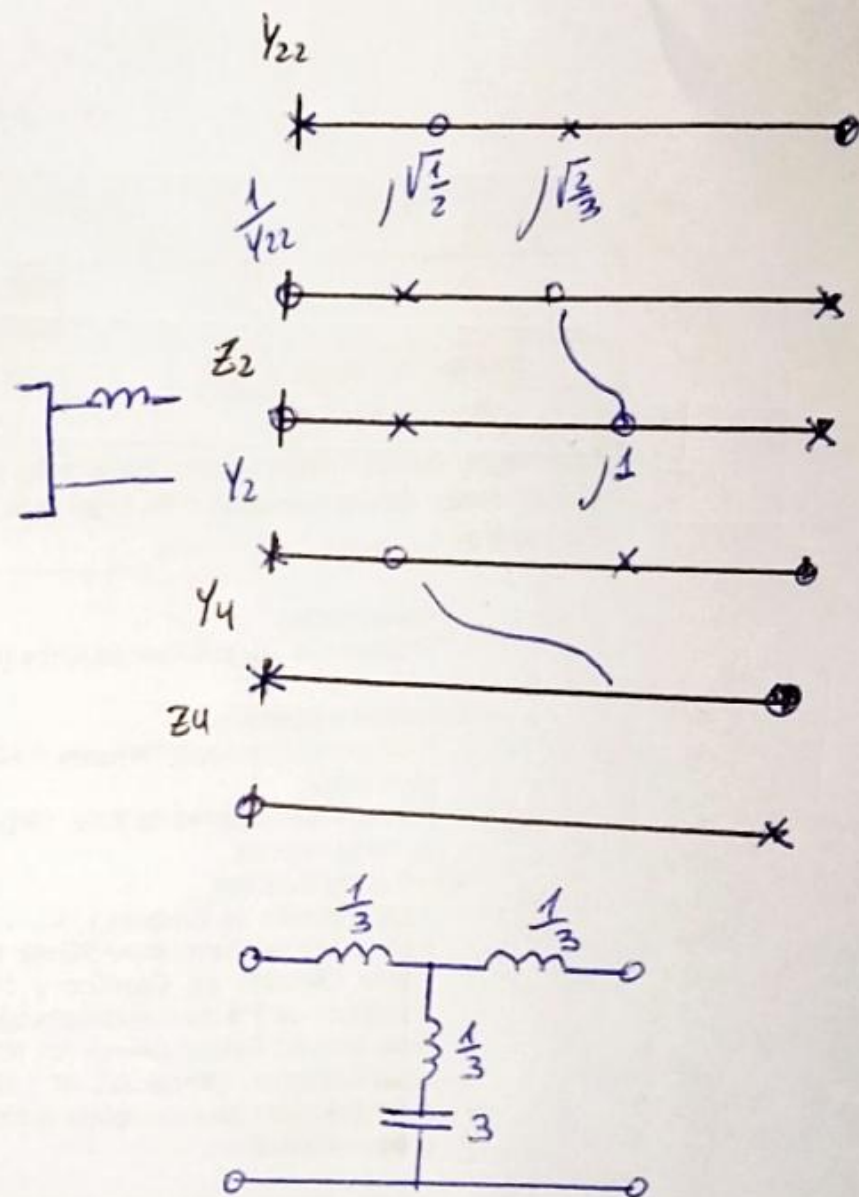 Y22
j√1/2 j√2/3
1/Y22
Z2
j1
Y2
Y4
Z4
1/3 1/3
1/3
3